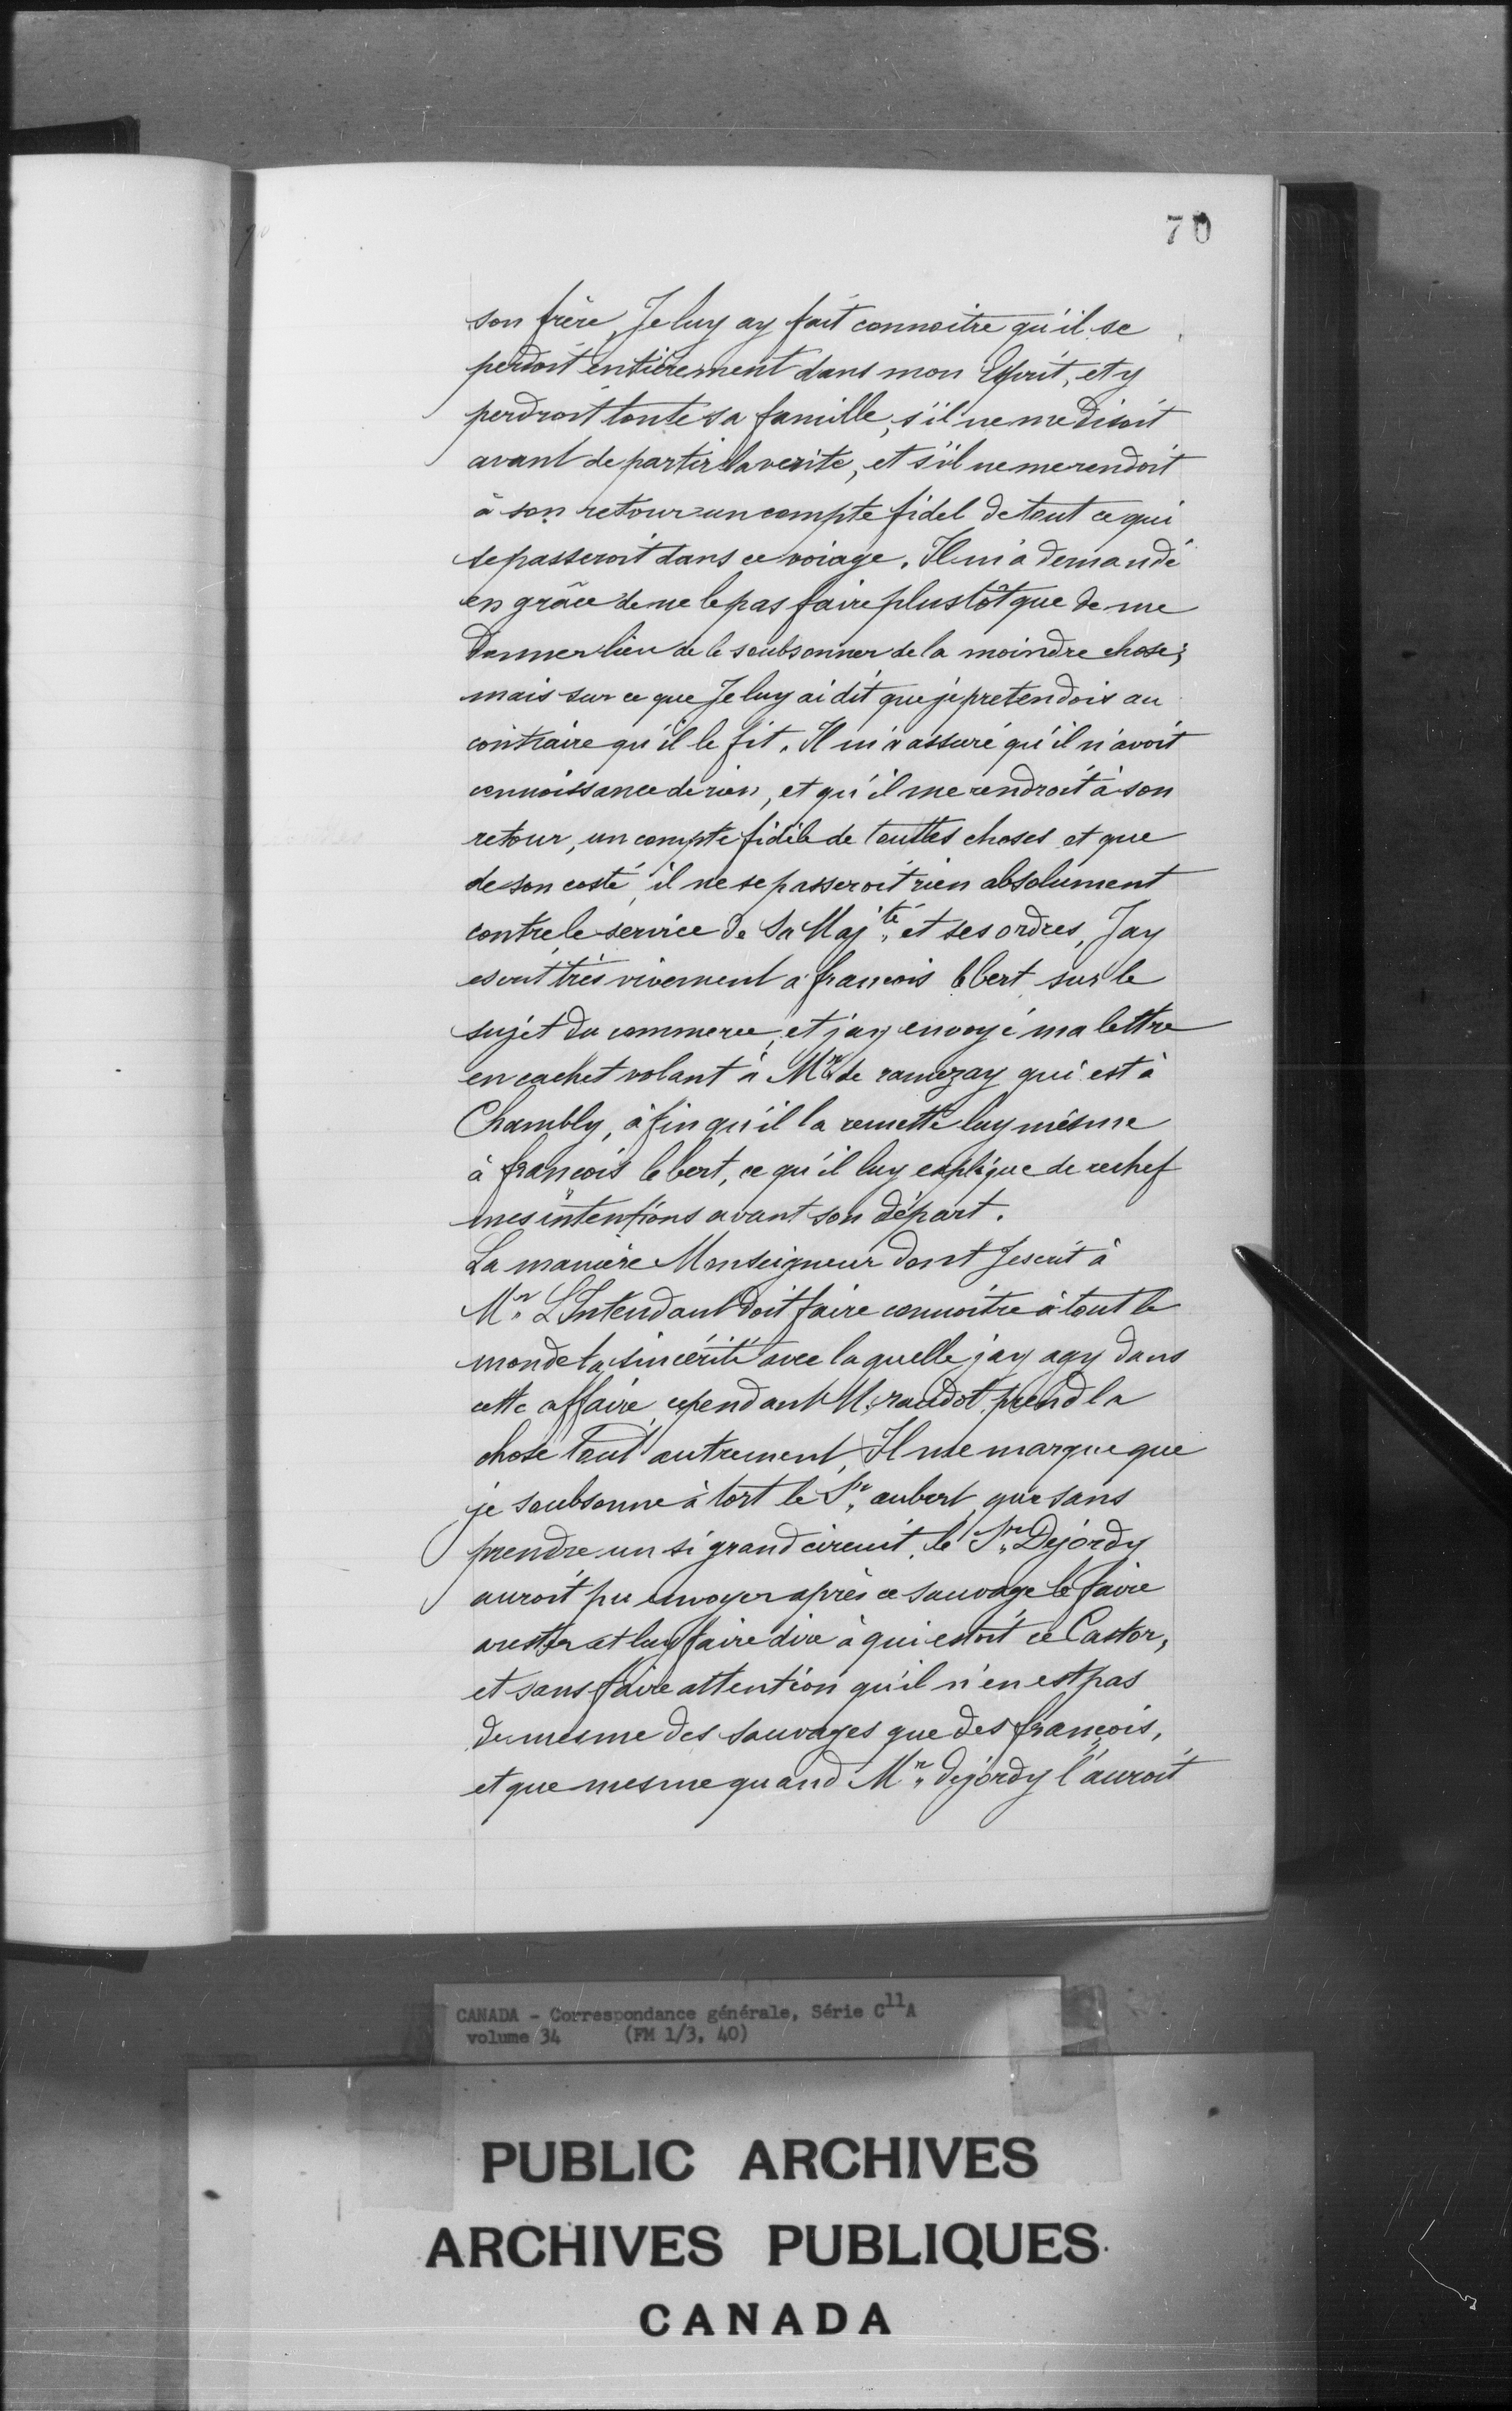 70
son frère, Je luy ay fait connoitre qu'il se
perdoit entièrement dans mon Esprit, et y
perdroit toute sa famille, s'il ne me disoit
avant de partir la verité, et s'il ne me rendoit
à son retour un compte fidel de tout ce qui
se passeroit dans ce voiage. Il m'a demandé
en grâce de ne le pas faire plustôt que de me
donner lieu de le soubsonner de la moindre chose;
mais sur ce que Je luy ai dit que je pretendois au
contraire qu'il le fit. Il m'a assuré qu'il n'avoit
connoissance de rien, et qu'il me rendroit à son
retour, un compte fidèle de touttes choses et que
de son costé, il ne se passeroit rien absolument
contre le service de Sa Maj.té et ses ordres, Jay
escrit très vivement a francois lebert sur le
sujet du commerce, et jay envoyé ma lettre
en cachet volant à Mr. de ramezay qui est à
Chambly, à fin qu'il la remette luy mêsme
à francois lebert, ce qu'il luy explique de rechef
mes intentions avant son départ.
La manière Monseigneur dont Jescrit à
Mr. L'Intendant doit faire connoitre à tout le
monde la sincérité avec laquelle jay agy dans
cette affaire cependant M. raudot prend la
chose tout autrement, Il me marque que
je soubsonne à tort le Sr. aubert que sans
prendre un si grand circuit, le Sr. Dejordy
auroit pu envoyer après ce sauvage le faire
arester et luy faire dire à qui estoit ce Castor,
et sans faire attention qu'il n'en est pas
de mesme des sauvages que des francois,
et que mesme quand Mr. dejordy l'auroit
CANADA - Correspondance générale, Série C11A
volume 34 (FM 1/3, 40)
PUBLIC ARCHIVES
ARCHIVES PUBLIQUES
CANADA